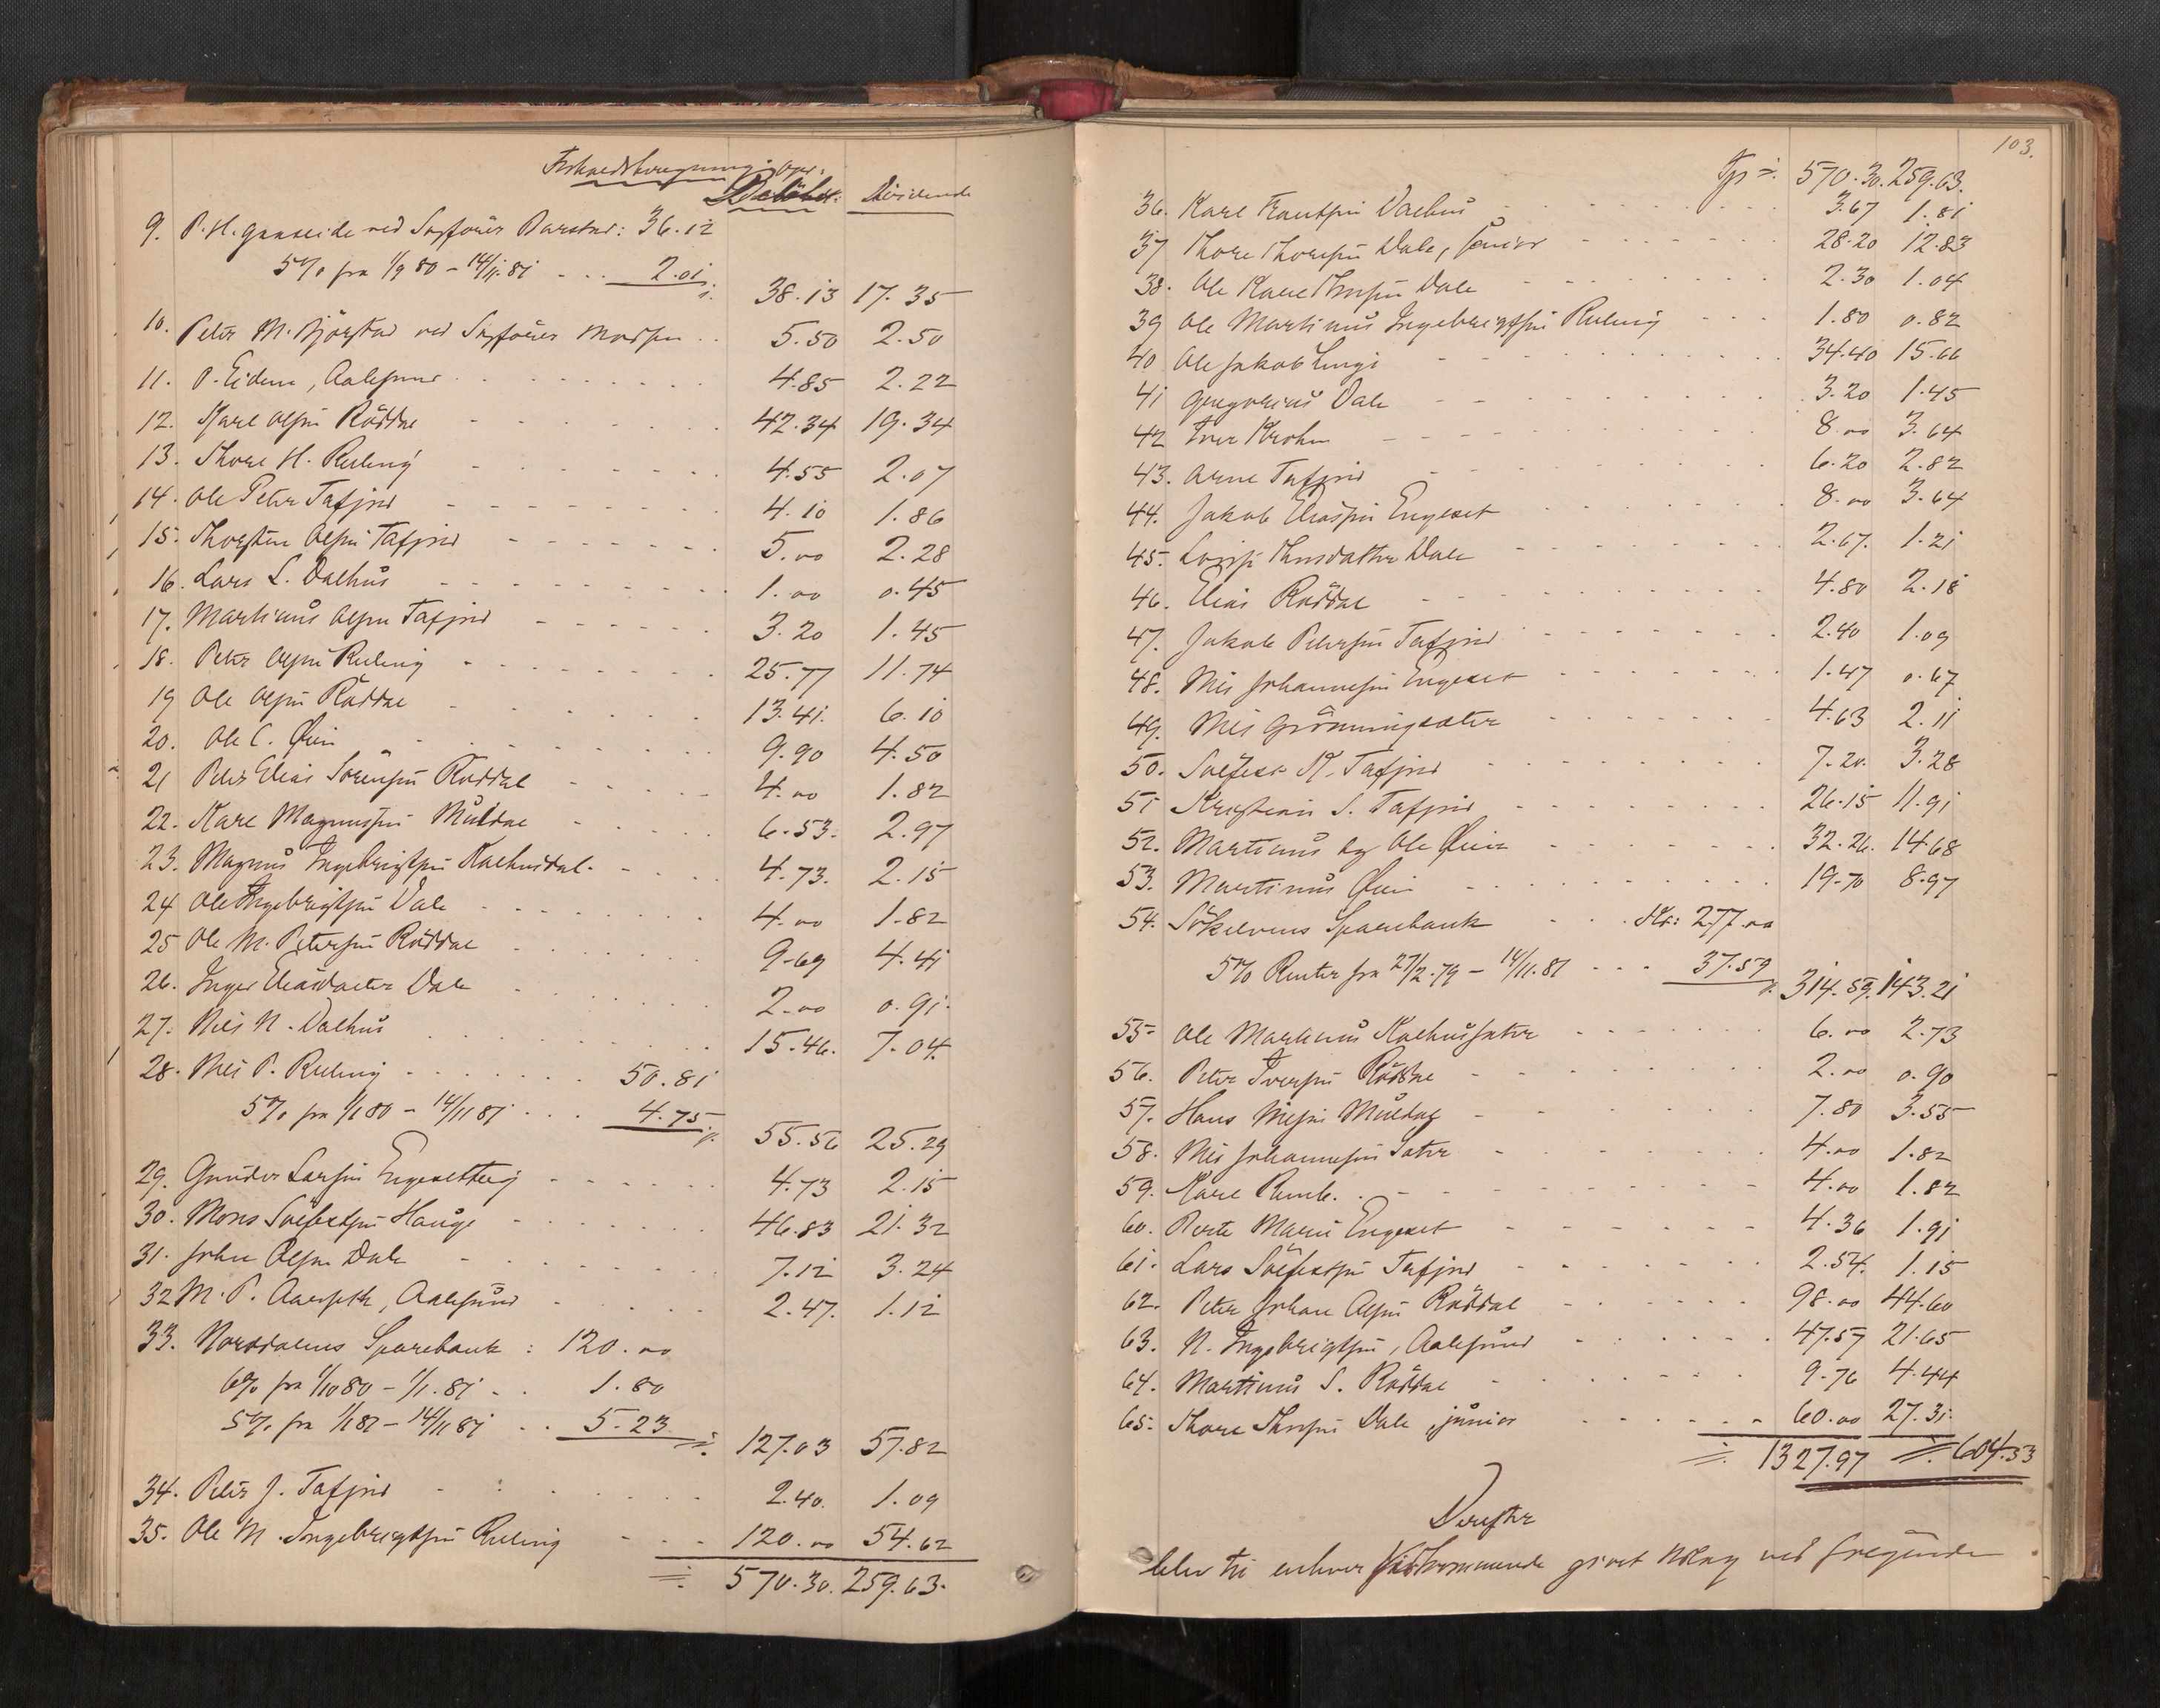 Dividende
9. P. H. ved Sagfører Barstad: 36.12
5% fra 1/9 80 - 14/11.81 2.01 38.13 17.35
10. Peter M. Bjørstad ved Sagfører Madsen 5.50 2.50
11. P. Eidem, Aalesund 4.85 2.22
12. Karl Olsen Röddal 42.34 19.34
13. Thore H. Reling 4.55 2.07
14. Ole Peter Tafjord 4.10 1.86
15. Thorsten Olsen Tafjord 5.00 2.28
16. Lars L. Dalhus 1.00 0.45
17. Martinus Olsen Tafjord 3.20 1.45
18. Peter Olsen Reling 25.77 11.74
19 Ole Olsen Röddal 13.41. 6.10
20. Ole C. Øien 9.90 4.50
21 Peter Elias Sörensen Röddal 4.00 1.82
22. Karl Magnussen Muldal 6.53. 2.97
23. Magnus Ingebrigtsen Kalhusdal. 4.73. 2.15
24 Ole Ingebrigtsen Dale 4.00 1.82
25 Ole M. Petersen Röddal 9.69 4.41
26. Inger Eliasdatter Dale 2.00 0.91.
27. Nils N. Dalhus 15.46. 7.04.
28. Nils P. Reling 50.81
5% fra 1/1 80 - 14/11 81 4.75. 55.56 25.29
29. Gunder Larsen Engesetteig 4.73 2.15
30. Mons Sölfestsen Hauge 46.83 21.32
31. Johan Olsen Dale 7.12 3.24
32 M. P. Aalesund 2.47. 1.12
33. Norddalens Sparebank: 120.00
6% fra 1/10 80 - 1/1.81 1.80
5% fra 1/1 81 - 14/11 81 5.23 127.03 57.82
34. Peter J. Tafjord 2.40. 1.09
35. Ole M. Ingebrigtsen Reling 120.00 54.62
570.30. 259.63.
103.
570.30. 259.63.
36. Karl Knutsen Dalhus 3.67 1.81
37 Thore Thoresen Dale, senior 28.20 12.83
38. Ole Karl Thorsen Dale 2.30 1.04
39 Ole Martinus Ingebrigtsen Reling 1.80 0.82
40 Ole Jakob Linge 34.40 15.66
41 Gregorius Dale 3.20 1.45
42 Iver Krohn 8.00 3.64
43. Arne Tafjord 6.20 2.82
44. Jakob Eliassen Engeset 8.00 3.64
45. Lovise Thorsdatter Dale 2.67. 1.21
46. Elias Röddal 4.80 2.18
47. Jakob Petersen Tafjord 2.40 1.09
48. Nils Johannesen Engeset 1.47 0.67
49. Nils Grönningsæter 4.63 2.11
50. Sölfest K. Tafjord 7.20. 3.28
51 Kristian S. Tafjord 26.15 11.91
52. Martinus og Ole Øien 32.26. 14.68
53. Martinus Øien 19.70 8.97
54. Sökelvens Sparebank Kr: 277.00
5% Renter fra 27/2.79 - 14/11.81 37.59 314.59. 143.21
55. Ole Martinus Kalhussæter 6.00 2.73
56. Peter Iversen Röddal 2.00 0.90
57. Hans Nilsen Muldal 7.80 3.55
58. Nils Johannesen Sæter 4.00 1.82
59. Karl 4.00 1.82
60. Berte Marie Engeset 4.36 1.91
61. Lars Sölfestsen Tafjord 2.54. 1.15
62. Peter Johan Olsen Röddal 98.00 44.60
63. N. Ingebrigtsen, Aalesund 47.57 21.65
64. Martinus S. Röddal 9.76 4.44
65. Thore Thorsen Dale, junior 60.00 27.31.
1327.97 604.53
Derefter
blev til enhver Vedkommende givet Udlæg ved følgende